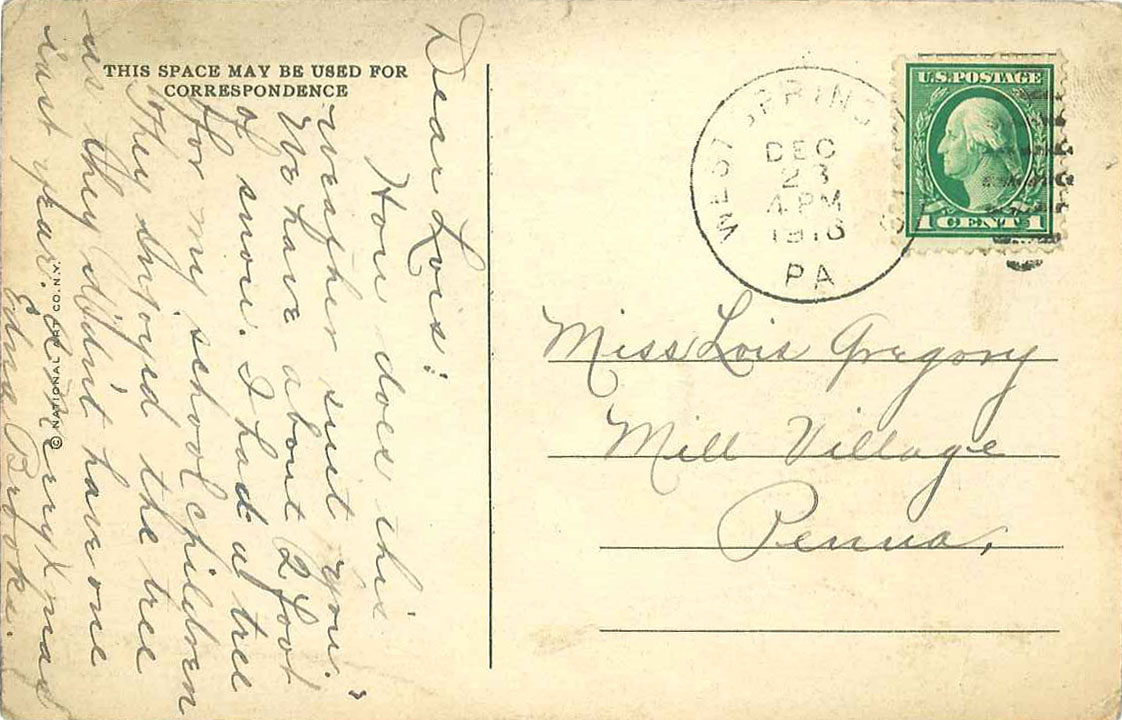 THIS SPACE MAY BE USED FOR
CORRESPONDENCE
Dear Lois:
How does this
weather suit you."
We have about 2 foot
of snow. I had a tree
for my school children
They injoyed the tree
as they didn't have one
last year. A Merry Xmas
Edna Brooks.
© NATIONAL ART CO. N.Y.
WEST SPRING
DEC
23
4 PM
1916
PA
U.S. POSTAGE
1 CENT 1
Miss Lois Gregory
Mill Village
Penna.